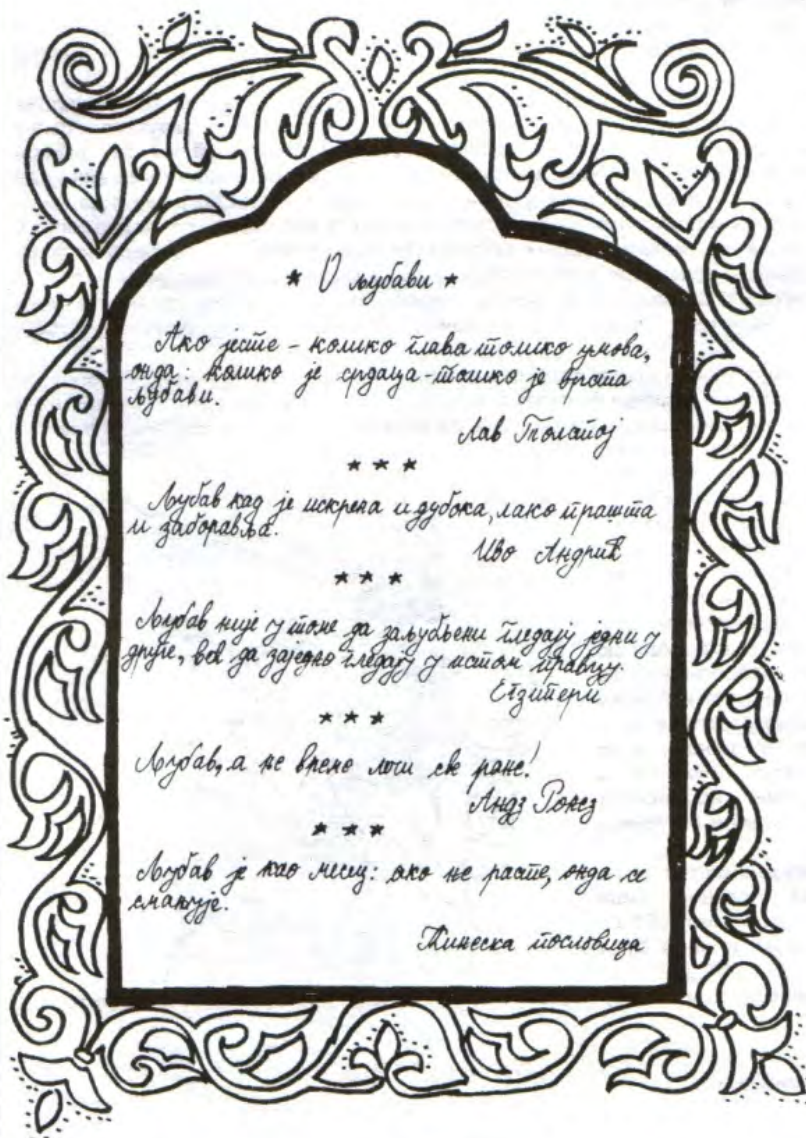 * О љубави *
Ако јесте - колико глава толико умова,
онда: колико је срдаца - толико је врста
љубави.
Лав Толстој
* * *
Љубав кад је искрена и дубока, лако прашта
и заборавља.
Иво Андрић
* * *
Љубав није у томе да заљубљени гледају једни у
друге, већ да заједно гледају у истом правцу.
Егзипери
* * *
Љубав, а не време лечи све ране!
Андз
* * *
Љубав је као месец: ако не расте, онда се
смањује.
Кинеска пословица